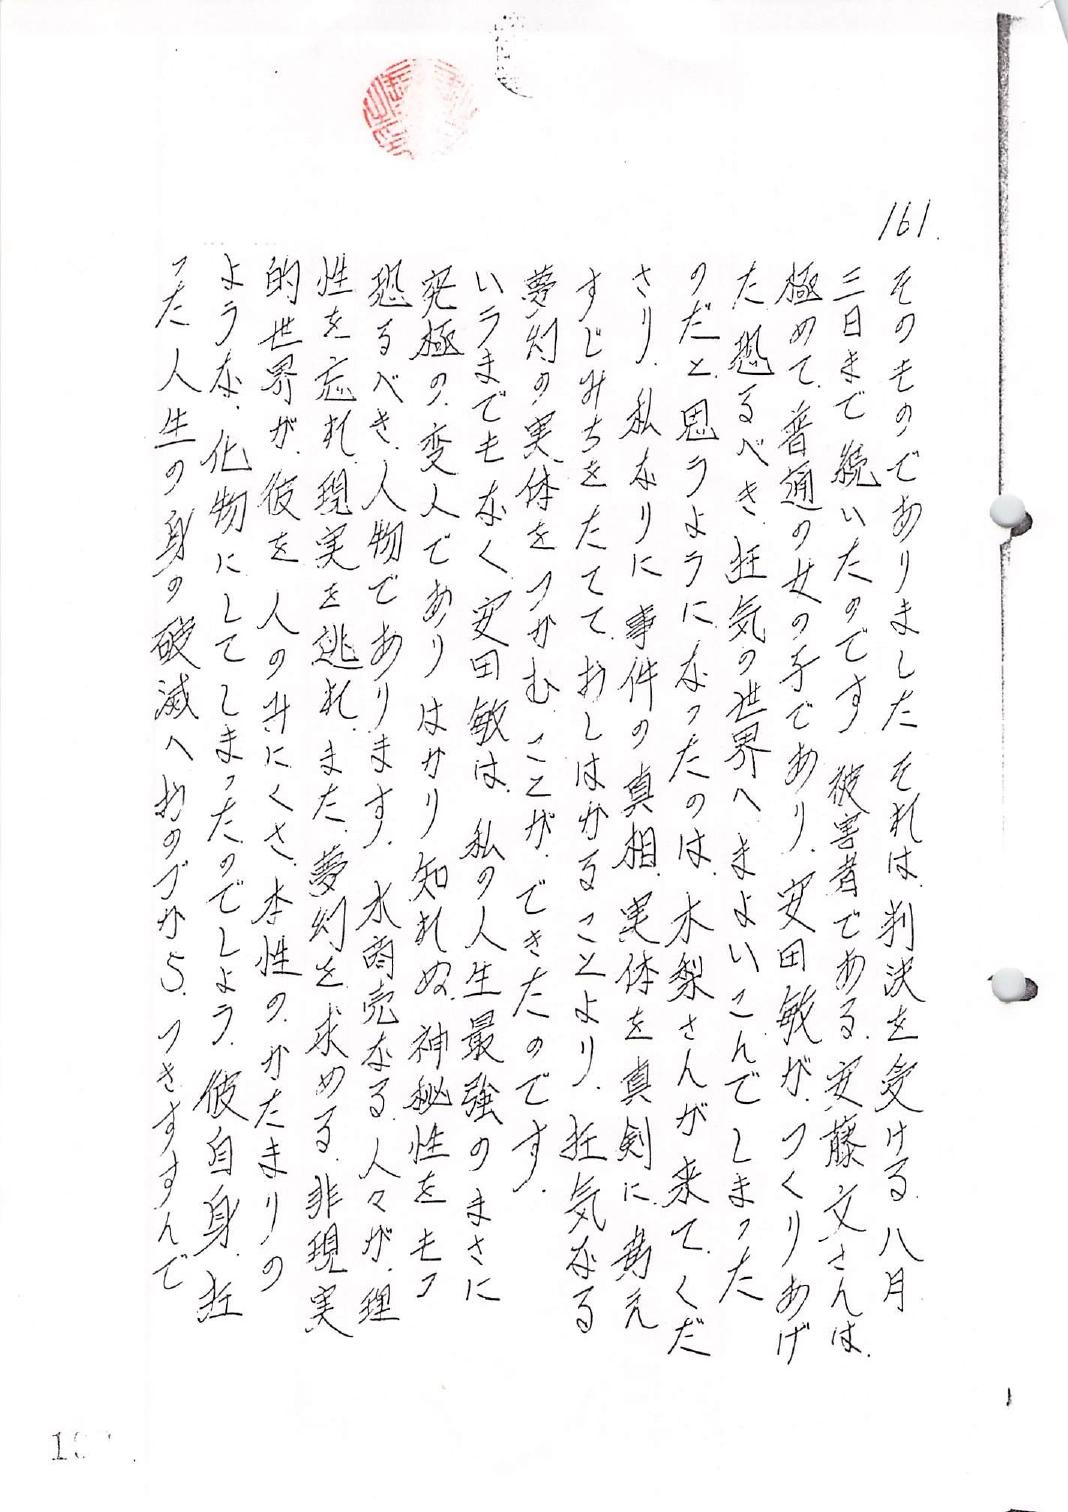 161.
そのもの、でありました それは、判決を受ける、八月
三日まで続いたのです 被害者である、安藤文さんは、
極めて、普通の女の子であり、安田敏が、つくりあげ
た、恐るべき、狂気の世界へ、まよいこんでしまった
のだと、思うように、なったのは、木梨さんが来て、くだ
さり、私なりに、事件の真相、実体を、真剣に、考え
すじみちをたてて、おしはかることより、狂気なる
夢幻の実体をつかむ、ことが、できたのです。
いうまでもなく、安田敏は、私の人生最強のまさに
究極の、変人であり はかり知れぬ、神秘性をもつ
恐るべき、人物であります、水商売なる、人々が、理
性を忘れ、現実を逃れ、また、夢幻を、求める、非現実
的世界が、彼を、人のみにくさ、本性の、かたまりの
ような、化物にしてしまったのでしょう、彼自身、狂
った、人生の身の破滅へおのづから、つきすすんで